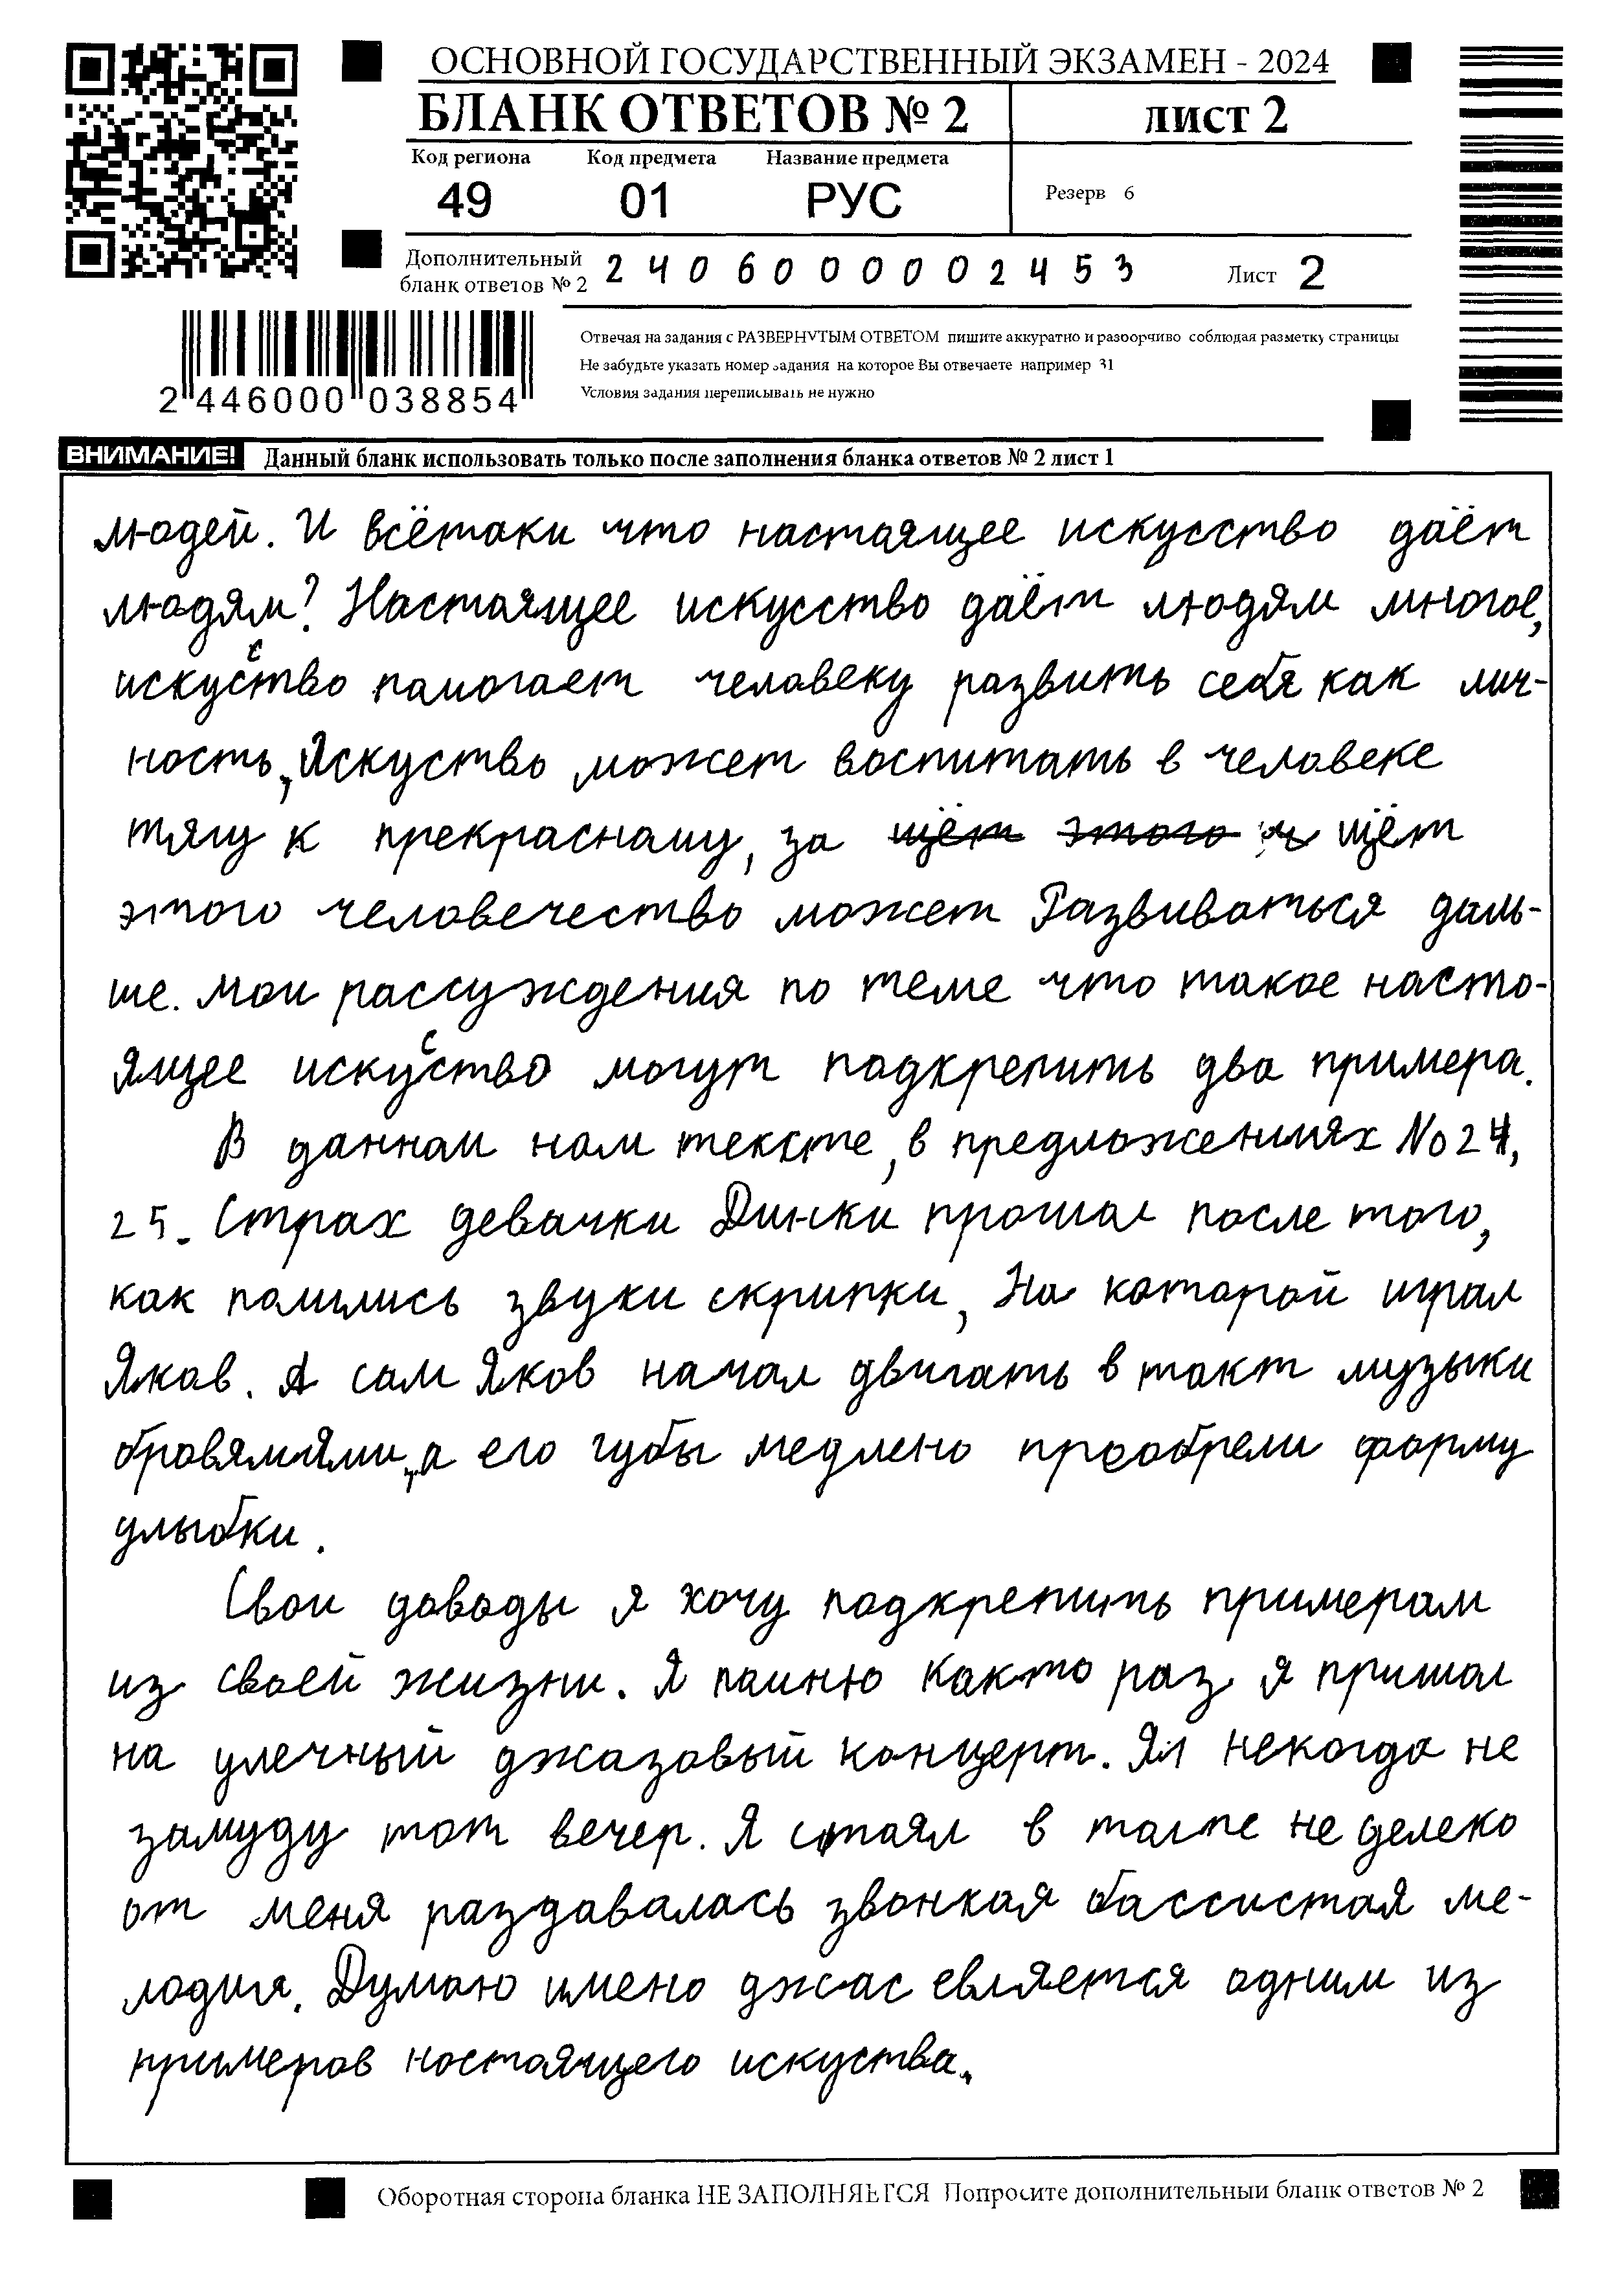 ОСНОВНОЙ ГОСУДАРСТВЕННЫЙ ЭКЗАМЕН - 2024
БЛАНК ОТВЕТОВ № 2 лист 2
Код региона Код предмета Название предмета
49 01 РУС
Резерв 6
Дополнительный
бланк ответов № 2 2406000002453 Лист 2
Отвечая на задания с РАЗВЕРНУТЫМ ОТВЕТОМ пишите аккуратно и разборчиво соблюдая разметку страницы
Не забудьте указать номер задания на которое Вы отвечаете например 31
Условия задания переписывать не нужно
2 446000 038854
ВНИМАНИЕ! Данный бланк использовать только после заполнения бланка ответов № 2 лист 1
людей. И всётаки что настаящее искусство даёт
людям? Настаящее искусство даёт людям многое,
искусство памогает человеку развить себя как лич-
ность, Искуство может воспитать в человеке
тягу к прекраснаму, за щёт этого щёт
этого человечество может Развиваться даль-
ше. Мои рассуждения по теме что такое насто-
ящее искусство могут падкрепить два примера.
В даннам нам тексте, в предложениях №24,
25. Страх девачки Динки прошол после того,
как палились звуки скрипки, На каторай играл
Яков. А сам Яков начал двигать в такт музыки
бровямями, а его губы медлено преобрели форму
улыбки.
Свои даводы я хочу падкрепить примерам
из своей жизни. Я памню както раз я пришол
на улечный джазовый концерт. Я некогда не
замуду тот вечер. Я стаял в толпе не делеко
от меня раздавалась звонкая бассистая ме-
лодия. Думаю имено джас евляется одним из
примеров ностоящего искуства.
Оборотная сторона бланка НЕ ЗАПОЛНЯЕТСЯ Попросите дополнительный бланк ответов № 2